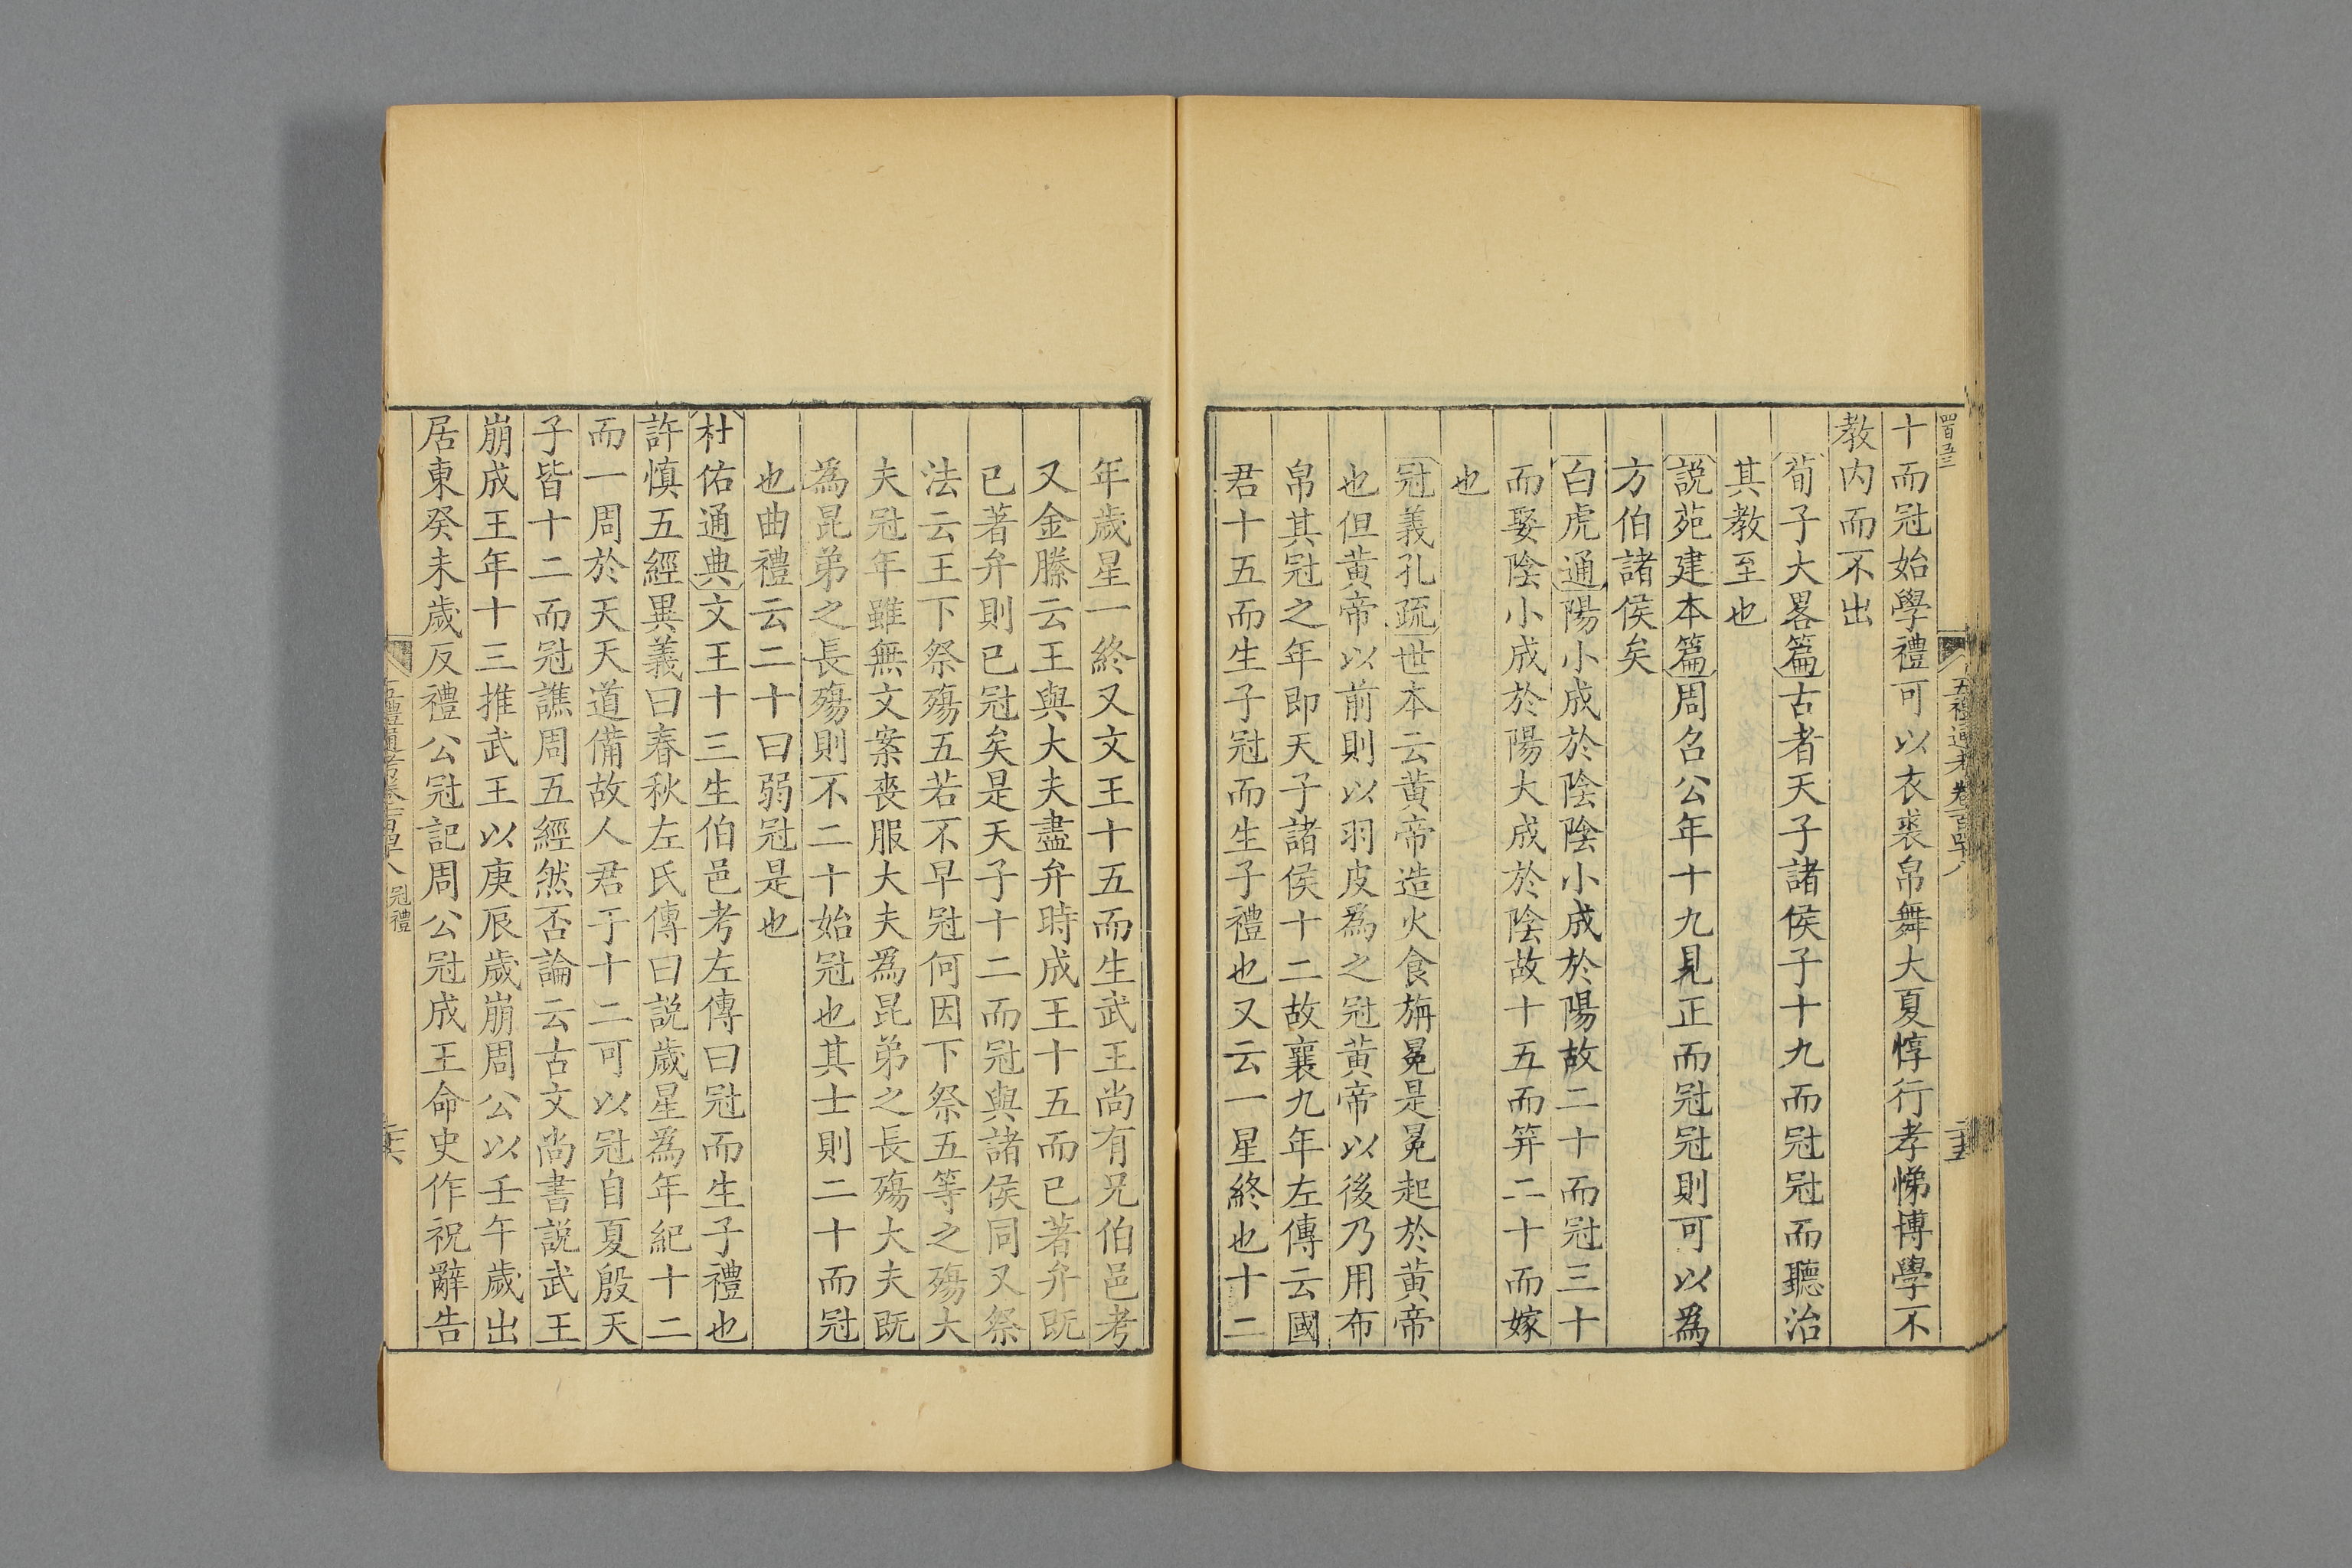 五禮通考卷一百四十八
二十五
十而冠始學禮可以衣裘帛舞大夏惇行孝悌博學不
教内而不出
荀子大畧篇古者天子諸侯子十九而冠冠而聽治
其教至也
説苑建本篇周召公年十九見正而冠冠則可以為
方伯諸侯矣
白虎通陽小成於陰陰小成於陽故二十而冠三十
而娶陰小成於陽大成於陰故十五而笄二十而嫁
也
冠義孔疏世本云黄帝造火食旃冕是冕起於黄帝
也但黄帝以前則以羽皮為之冠黄帝以後乃用布
帛其冠之年即天子諸侯十二故襄九年左傳云國
君十五而生子冠而生子禮也又云一星終也十二
年歲星一終又文王十五而生武王尚有兄伯邑考
又金縢云王與大夫盡弁時成王十五而已著弁既
已著弁則已冠矣是天子十二而冠與諸侯同又祭
法云王下祭殤五若不早冠何因下祭五等之殤大
夫冠年雖無文案喪服大夫為昆弟之長殤大夫既
為昆弟之長殤則不二十始冠也其士則二十而冠
也曲禮云二十曰弱冠是也
杜佑通典文王十三生伯邑考左傳曰冠而生子禮也
許慎五經異義曰春秋左氏傳曰説歲星為年紀十二
而一周於天天道備故人君于十二可以冠自夏殷天
子皆十二而冠譙周五經然否論云古文尚書説武王
崩成王年十三推武王以庚辰歲崩周公以壬午歲出
居東癸未歲反禮公冠記周公冠成王命史作祝辭告
五禮通考卷一百四十八 冠禮
二十六